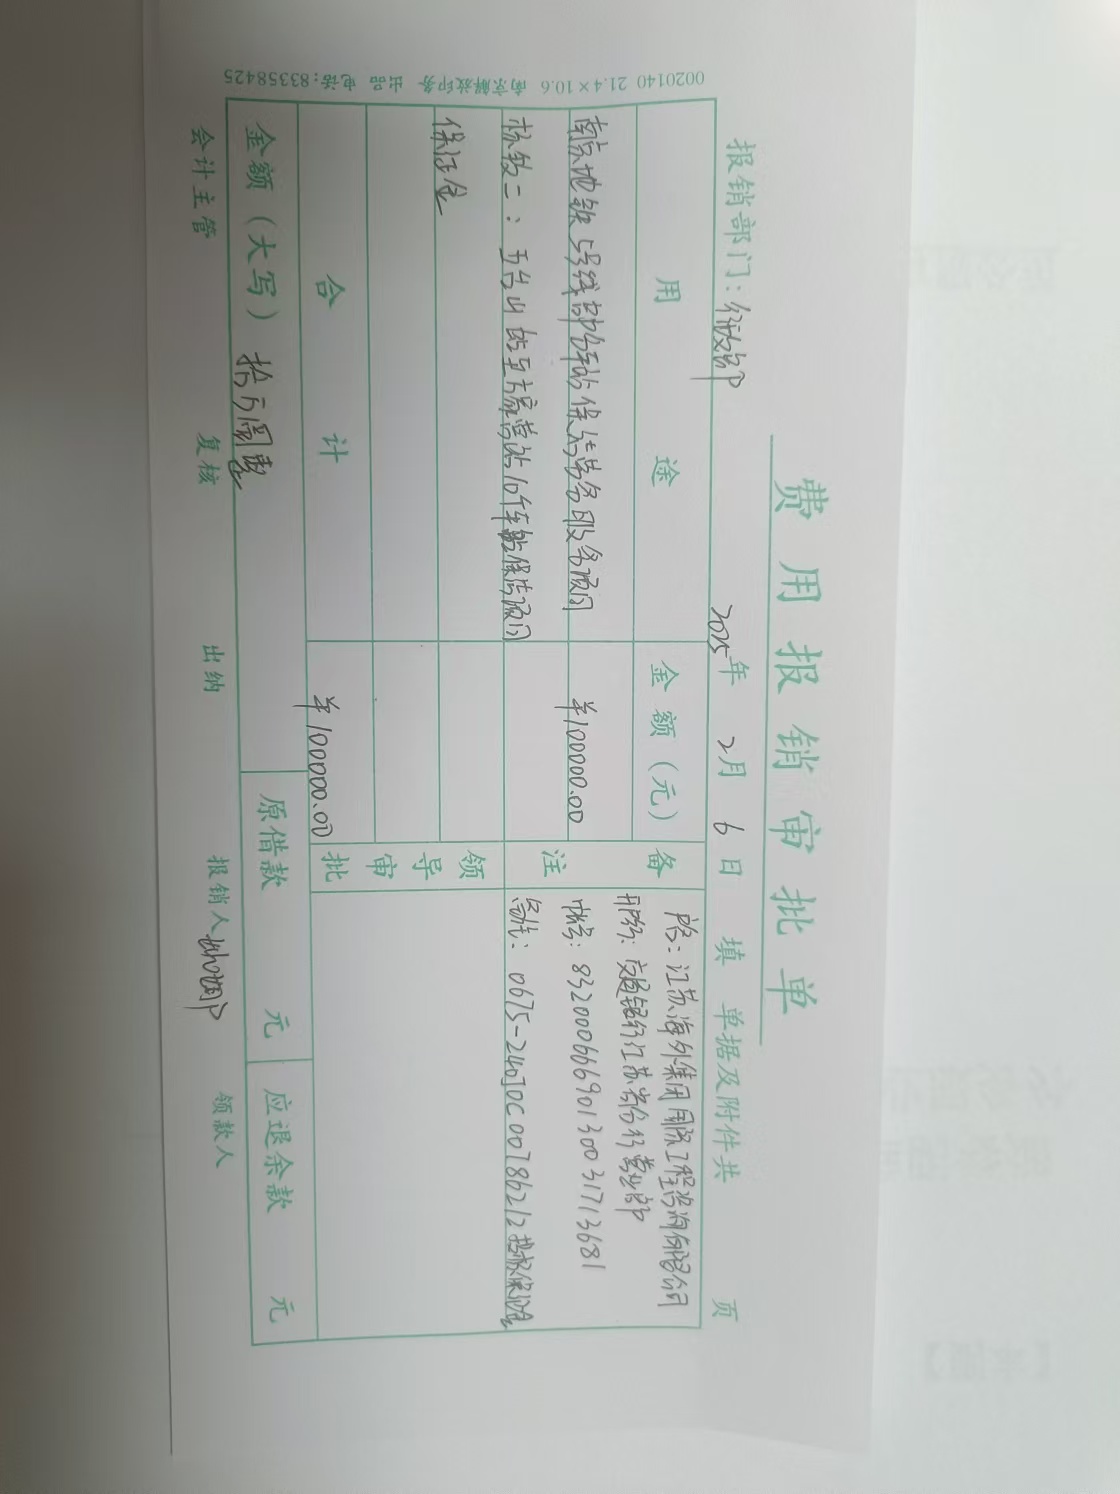 费用报销审批单
报销部门：行政部 2025年 2月 6日 填 单据及附件共 页
用途 金额（元） 备注
南京地铁5号线部分车站保洁劳务服务项目 ￥100000.00
标段二：五台山站至方家营站10个车站保洁项目
保证金
合计 ￥100000.00
户名：江苏海外集团国际工程咨询有限公司
开户行：交通银行江苏省分行营业部
帐号：83200066690130031713681
备注：0675-24010C007862/2投标保证金
领导审批
金额（大写）拾万圆整 原借款 元 应退余款 元
会计主管 复核 出纳 报销人 领款人
0020140 21.4×10.6 南京解放印务 出品 电话:83358425